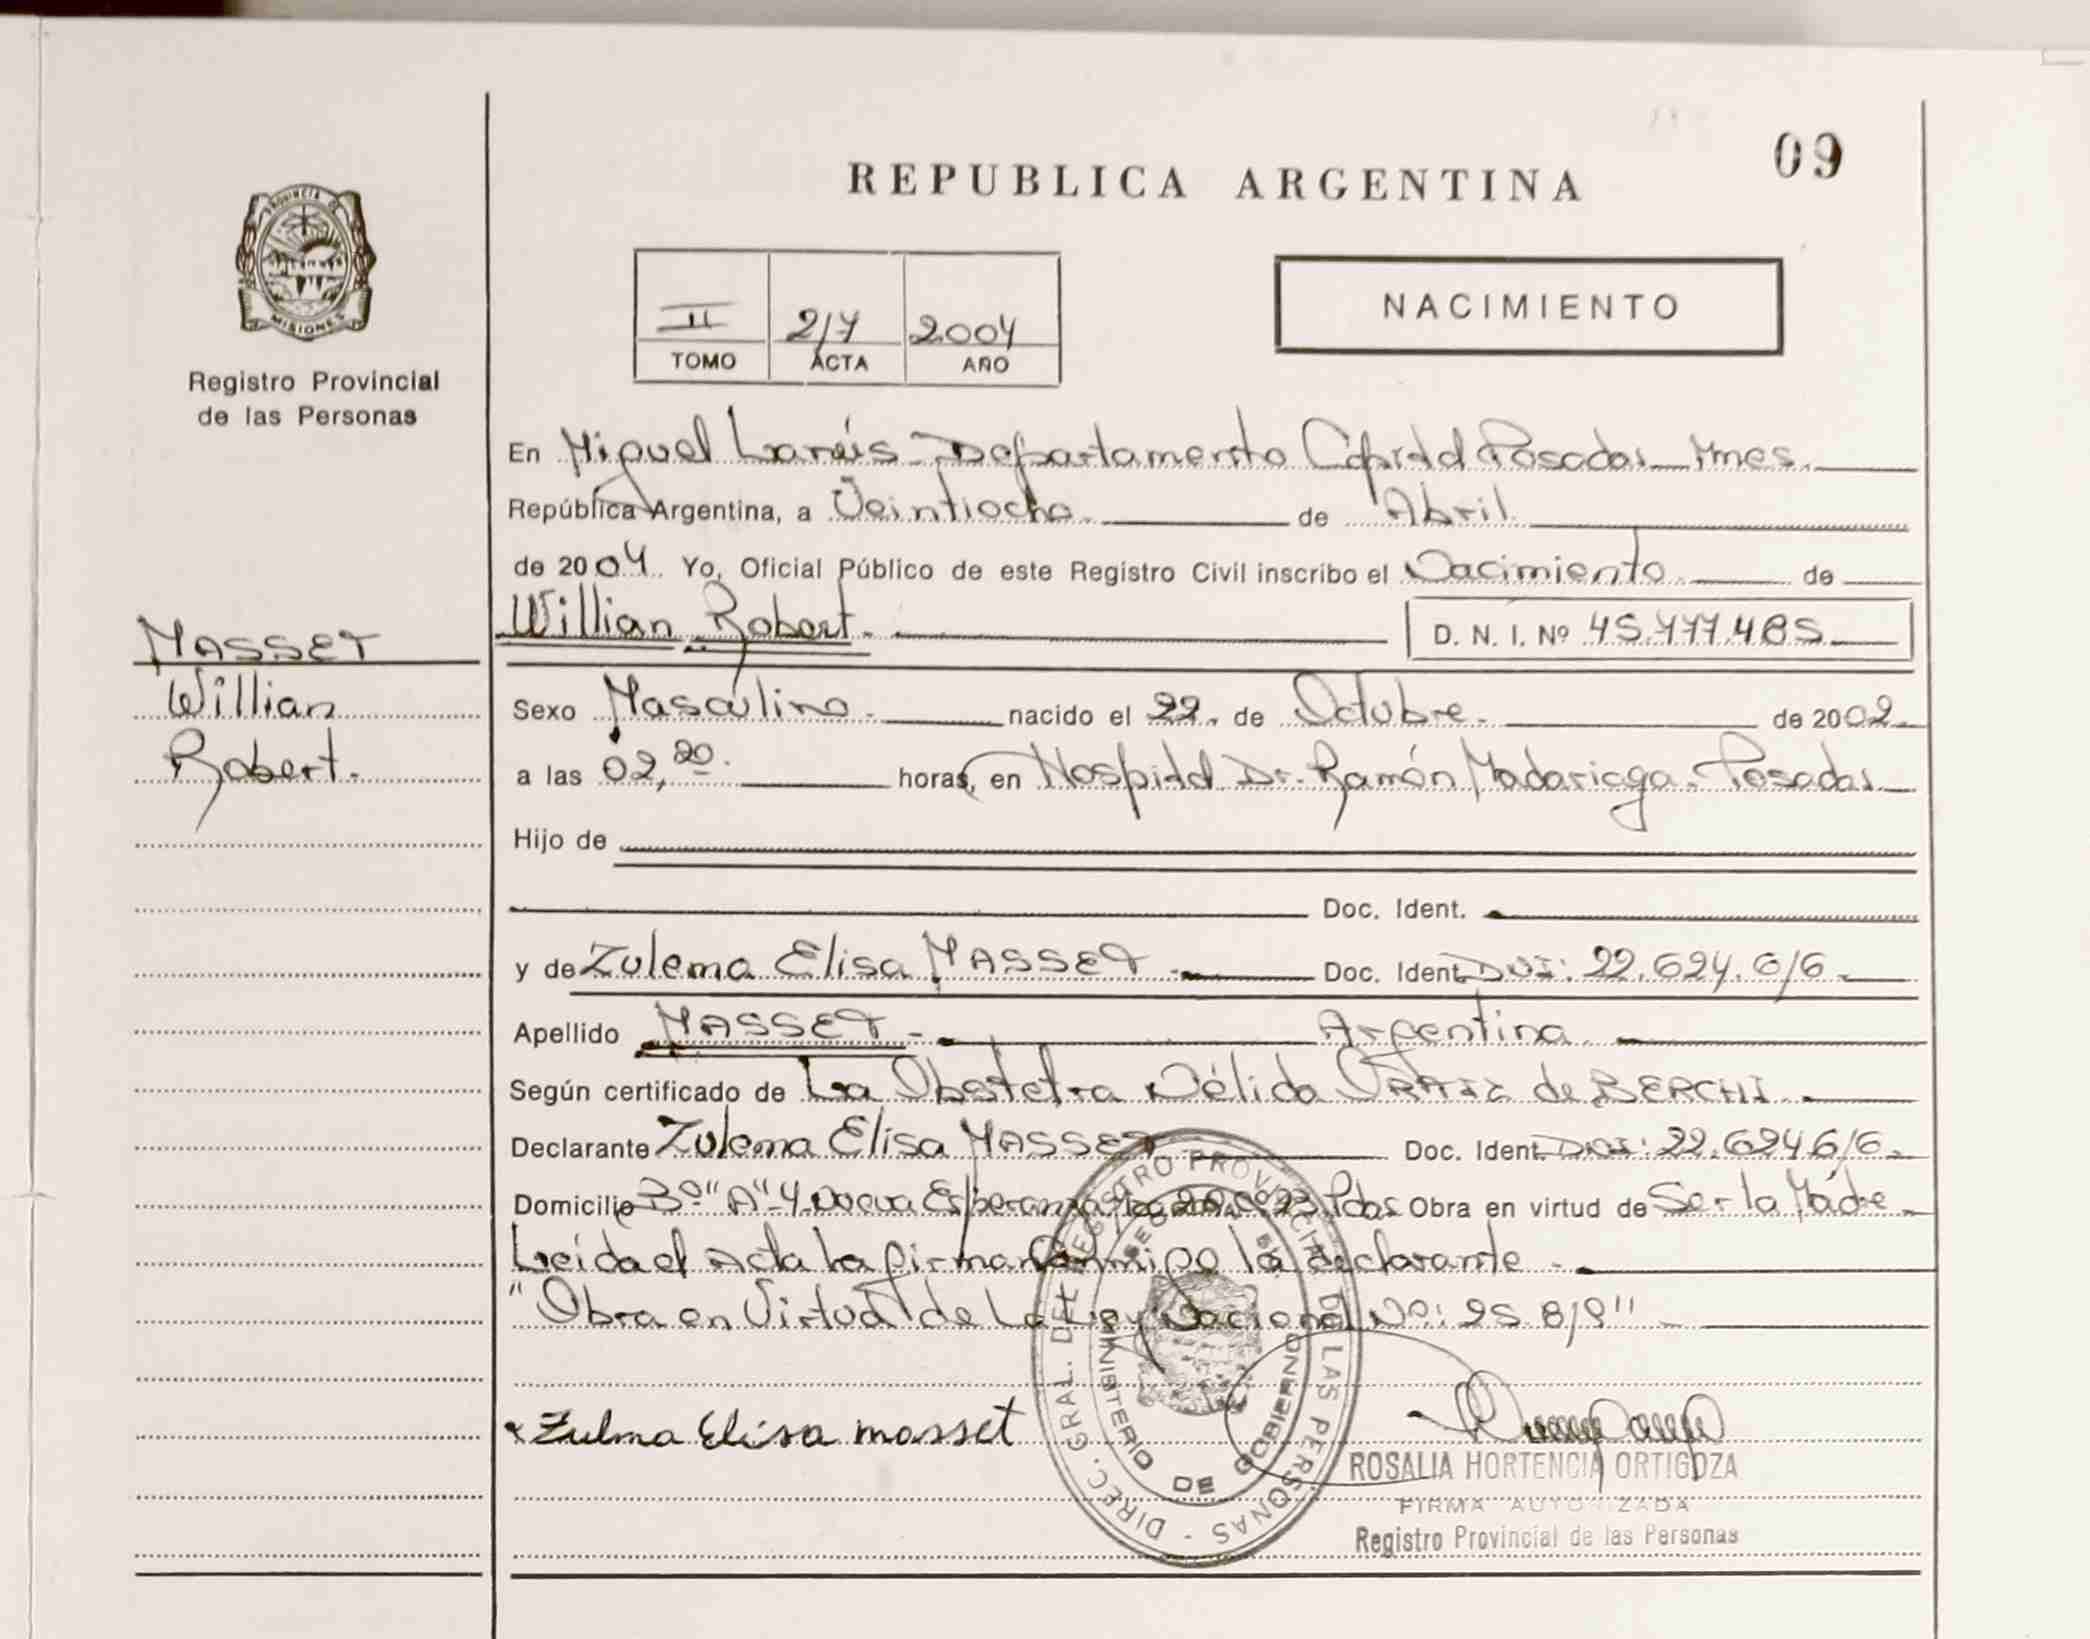 09
REPUBLICA ARGENTINA
PROVINCIA DE
MISIONES
Registro Provincial
de las Personas
II 2004
TOMO ACTA AÑO
NACIMIENTO
En Miguel Lanús - Departamento Capital Posadas Mnes.
República Argentina, a Veintiocho de Abril
de 2004. Yo, Oficial Público de este Registro Civil inscribo el Nacimiento de
Willian Robert. D. N. I. Nº
MASSET
Willian
Robert.
Sexo Masculino. nacido el 22. de Octubre. de 2002
a las 02,20. horas, en Hospital Dr. Ramón Madariaga. Posadas
Hijo de
Doc. Ident.
y de Zulema Elisa MASSET Doc. Ident. DNI: 22.624.616
Apellido MASSET - Argentina
Según certificado de La Obstetra Nélida de BERCHI
Declarante Zulema Elisa MASSET Doc. Ident. DNI: 22.624616
Domicilio Bº "A" 4 Nueva Esperanza Pdas Obra en virtud de Ser la Madre
Leida el Acta la firma Conmigo la declarante -
"Obra en Virtud de La Ley Nacional Nº: 25.819"
Zulma Elisa masset
DIREC. GRAL. DEL REGISTRO PROVINCIAL DE LAS PERSONAS
MINISTERIO DE GOBIERNO
ROSALIA HORTENCIA ORTIGOZA
FIRMA AUTORIZADA
Registro Provincial de las Personas